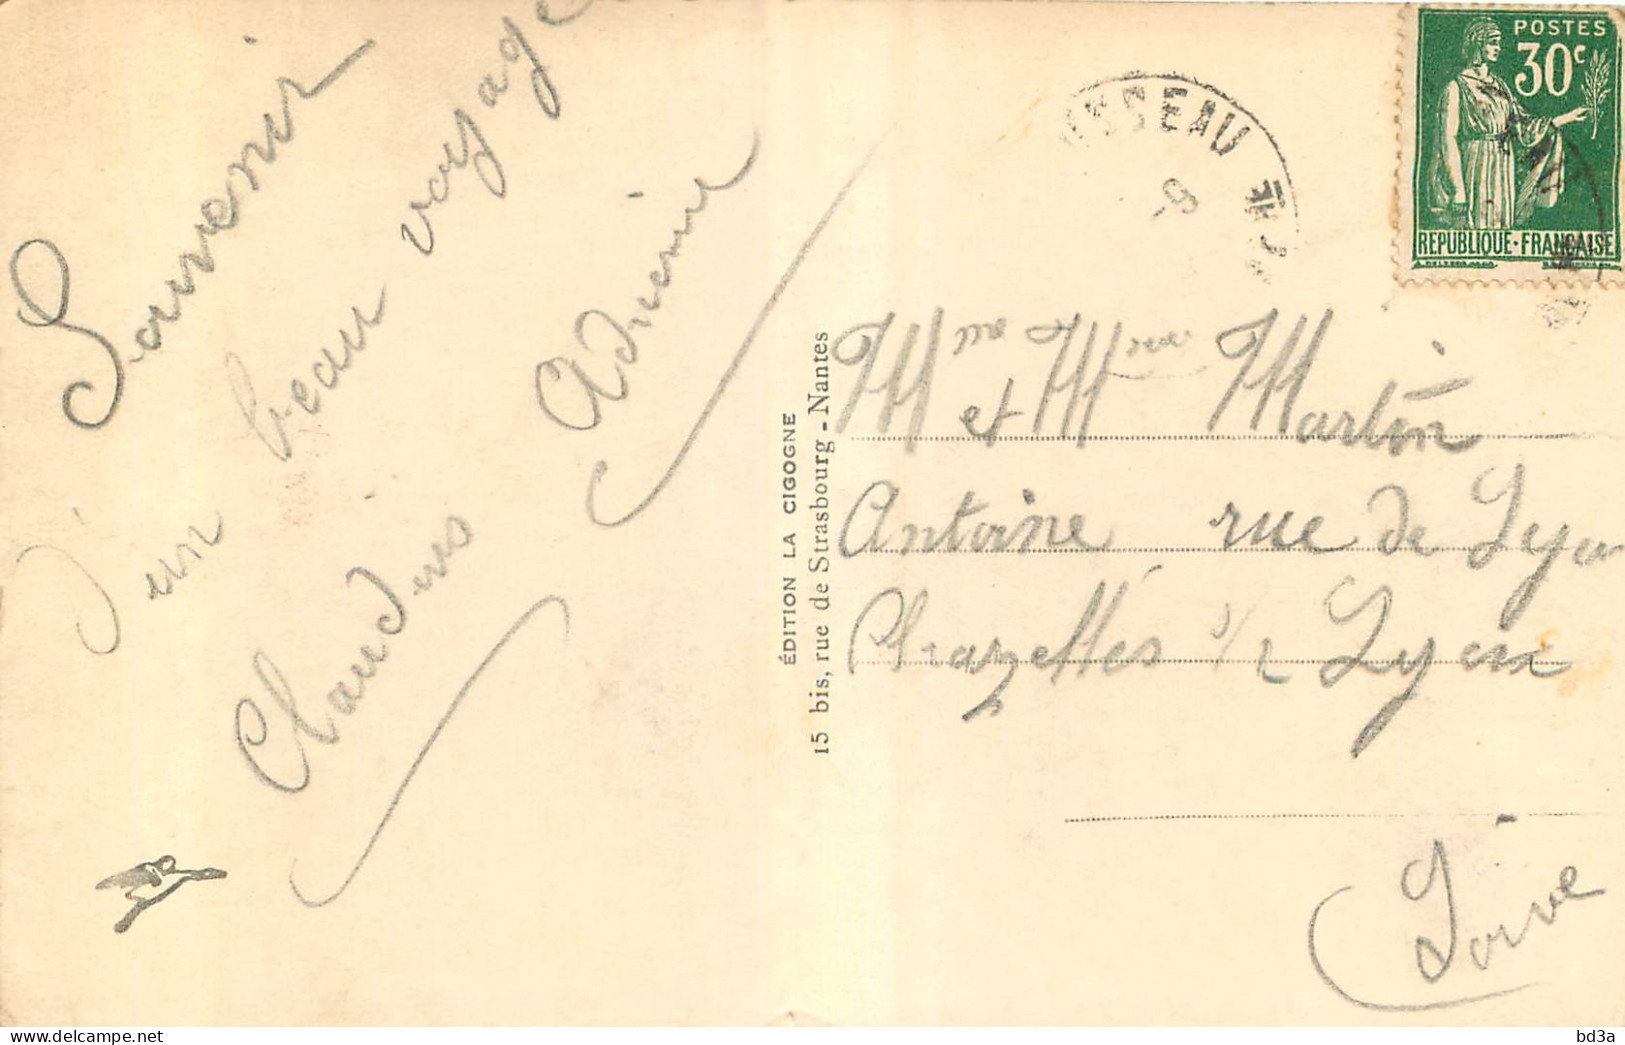 Souvenir
d'un beau voyage
Claudius Adrienne
ÉDITION LA CIGOGNE
15 bis, rue de Strasbourg - Nantes
POSTES
30c
REPUBLIQUE·FRANÇAISE
SSEAU
M et M Martin
Antoine rue de Lyon
Chazelles s/ Lyon
Loire
bd3a